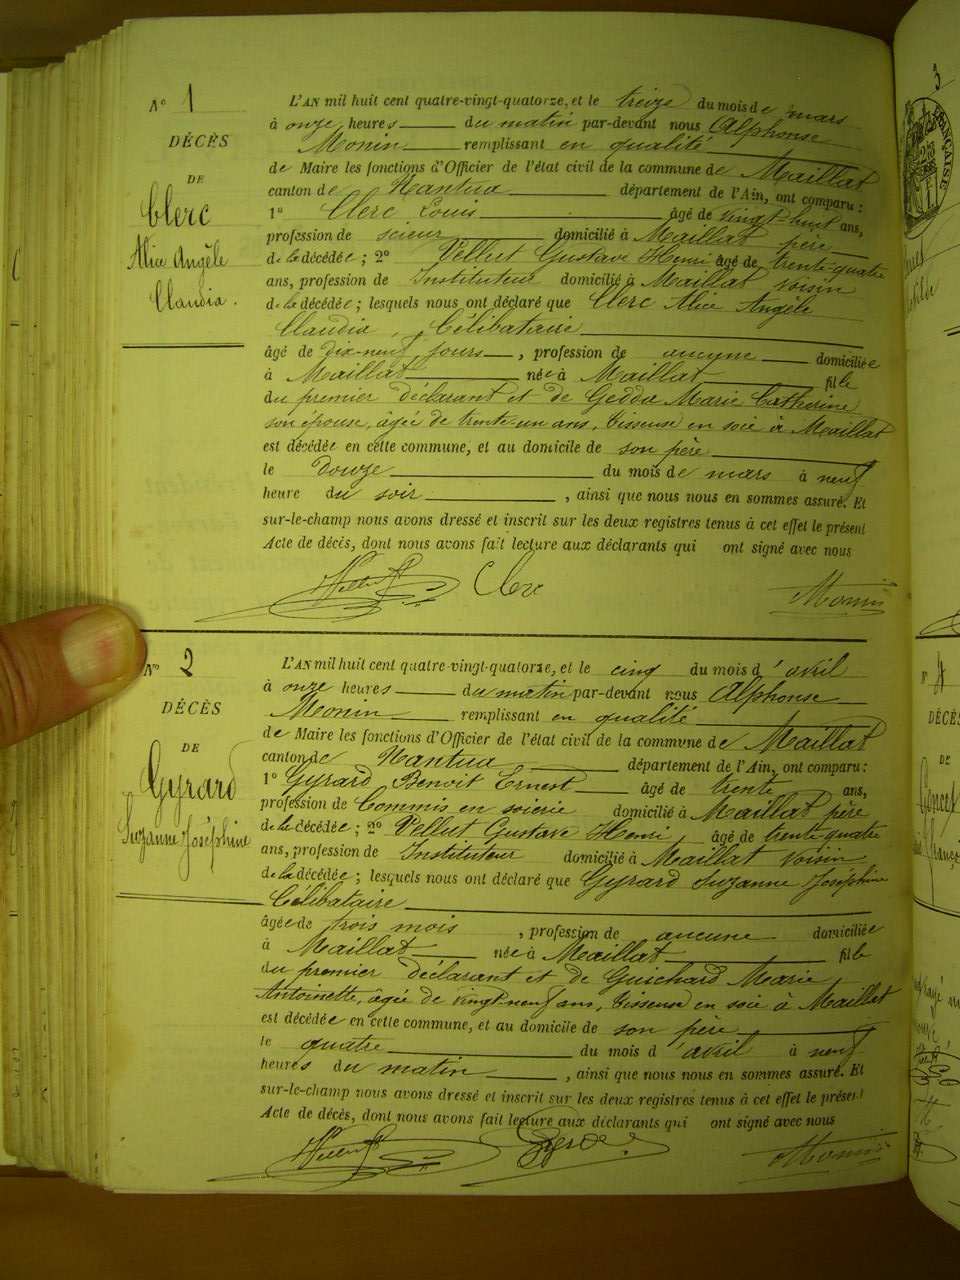 N° 1
DÉCÈS
DE
Clerc
Alice Angèle
Claudia.
L'AN mil huit cent quatre-vingt-quatorze, et le treize du mois de mars
à onze heures du matin par-devant nous Alphonse
Monin remplissant en qualité
de Maire les fonctions d'Officier de l'état civil de la commune de Maillat
canton de Nantua département de l'Ain, ont comparu :
1° Clerc Louis âgé de vingt-huit ans,
profession de scieur domicilié à Maillat père
de la décédée ; 2° Vellut Gustave Henri âgé de trente-quatre
ans, profession de Instituteur domicilié à Maillat voisin
de la décédée ; lesquels nous ont déclaré que Clerc Alice Angèle
Claudia, Célibataire
âgé de dix-neuf jours, profession de aucune domiciliée
à Maillat née à Maillat fille
du premier déclarant et de Gedda Marie Catherine
son épouse, âgée de trente-un ans, tisseuse en soie à Maillat
est décédée en cette commune, et au domicile de son père
le douze du mois de mars à neuf
heure du soir, ainsi que nous nous en sommes assuré. Et
sur-le-champ nous avons dressé et inscrit sur les deux registres tenus à cet effet le présent
Acte de décès, dont nous avons fait lecture aux déclarants qui ont signé avec nous
Vellut Clerc Monin
N° 2
DÉCÈS
DE
Gyrard
Suzanne Joséphine
L'AN mil huit cent quatre-vingt-quatorze, et le cinq du mois d'avril
à onze heures du matin par-devant nous Alphonse
Monin remplissant en qualité
de Maire les fonctions d'Officier de l'état civil de la commune de Maillat
canton de Nantua département de l'Ain, ont comparu :
1° Gyrard Benoit Ernest âgé de trente ans,
profession de Commis en soierie domicilié à Maillat père
de la décédée ; 2° Vellut Gustave Henri âgé de trente-quatre
ans, profession de Instituteur domicilié à Maillat voisin
de la décédée ; lesquels nous ont déclaré que Gyrard Suzanne Joséphine
Célibataire
âgée de trois mois, profession de aucune domiciliée
à Maillat née à Maillat fille
du premier déclarant et de Guichard Marie
Antoinette, âgée de vingt-neuf ans, tisseuse en soie à Maillat
est décédée en cette commune, et au domicile de son père
le quatre du mois d'avril à neuf
heures du matin, ainsi que nous nous en sommes assuré. Et
sur-le-champ nous avons dressé et inscrit sur les deux registres tenus à cet effet le présent
Acte de décès, dont nous avons fait lecture aux déclarants qui ont signé avec nous
Vellut Monin
3
N° 4
DÉCÈS
DE